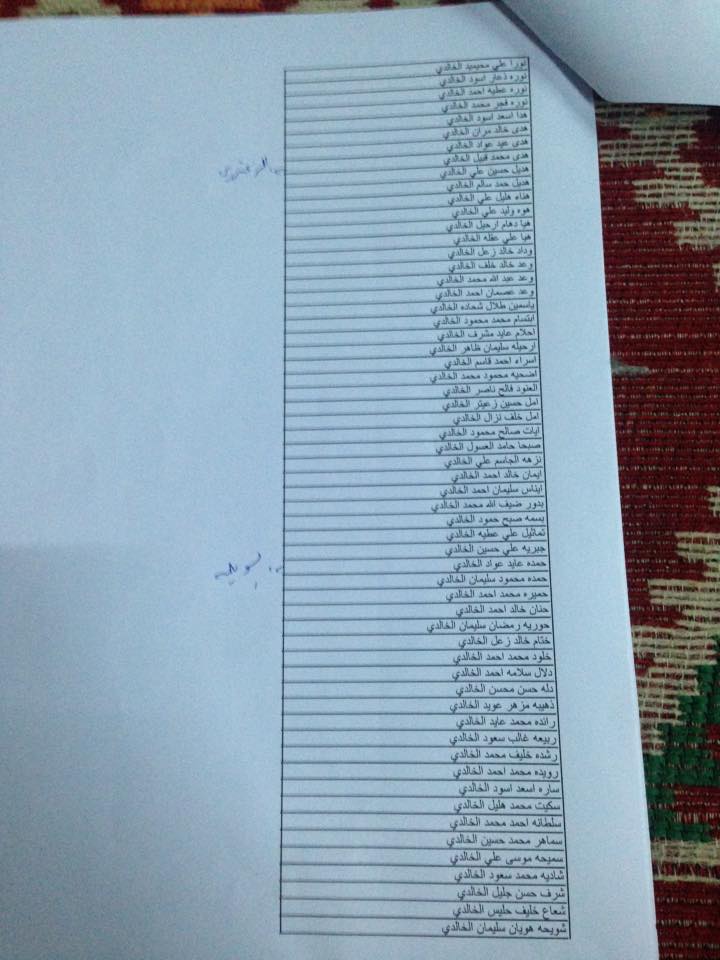 نورا علي محيميد الخالدي
نوره ذعار اسود الخالدي
نوره عطيه احمد الخالدي
نوره فجر محمد الخالدي
هدا اسعد اسود الخالدي
هدى خالد مران الخالدي
هدى عيد عواد الخالدي
هدى محمد قبيل الخالدي
هديل حسين علي الخالدي
هديل حمد سالم الخالدي
هناء هليل علي الخالدي
هوه وليد علي الخالدي
هيا دهام ارحيل الخالدي
هيا علي عقله الخالدي
وداد خالد زعل الخالدي
وعد خالد خلف الخالدي
وعد عبد الله محمد الخالدي
وعد عصمان احمد الخالدي
ياسمين طلال شحاده الخالدي
ابتسام محمد محمود الخالدي
احلام عايد مشرف الخالدي
ارحيله سليمان ظاهر الخالدي
اسراء احمد قاسم الخالدي
اضحيه محمود محمد الخالدي
العنود فالح ناصر الخالدي
امل حسين زعيتر الخالدي
امل خلف نزال الخالدي
ايات صالح محمود الخالدي
صبحا حامد العسول الخالدي
نزهه الجاسم علي الخالدي
ايمان خالد احمد الخالدي
ايناس سليمان احمد الخالدي
بدور ضيف الله محمد الخالدي
بسمه صبح حمود الخالدي
تماثيل علي عطيه الخالدي
جبريه علي حسين الخالدي
حمده عايد عواد الخالدي
حمده محمود سليمان الخالدي
حميره محمد احمد الخالدي
حنان خالد احمد الخالدي
حوريه رمضان سليمان الخالدي
ختام خالد زعل الخالدي
خلود محمد احمد الخالدي
دلال سلامه احمد الخالدي
دله حسن محسن الخالدي
ذهيبه مزهر عويد الخالدي
رائده محمد عايد الخالدي
ربيعه غالب سعود الخالدي
رشده خليف محمد الخالدي
رويده محمد احمد الخالدي
ساره اسعد اسود الخالدي
سكيت محمد هليل الخالدي
سلطانه احمد محمد الخالدي
سماهر محمد حسين الخالدي
سميحه موسى علي الخالدي
شاديه محمد سعود الخالدي
شرف حسن جليل الخالدي
شعاع خليف حليس الخالدي
شويحه هويان سليمان الخالدي